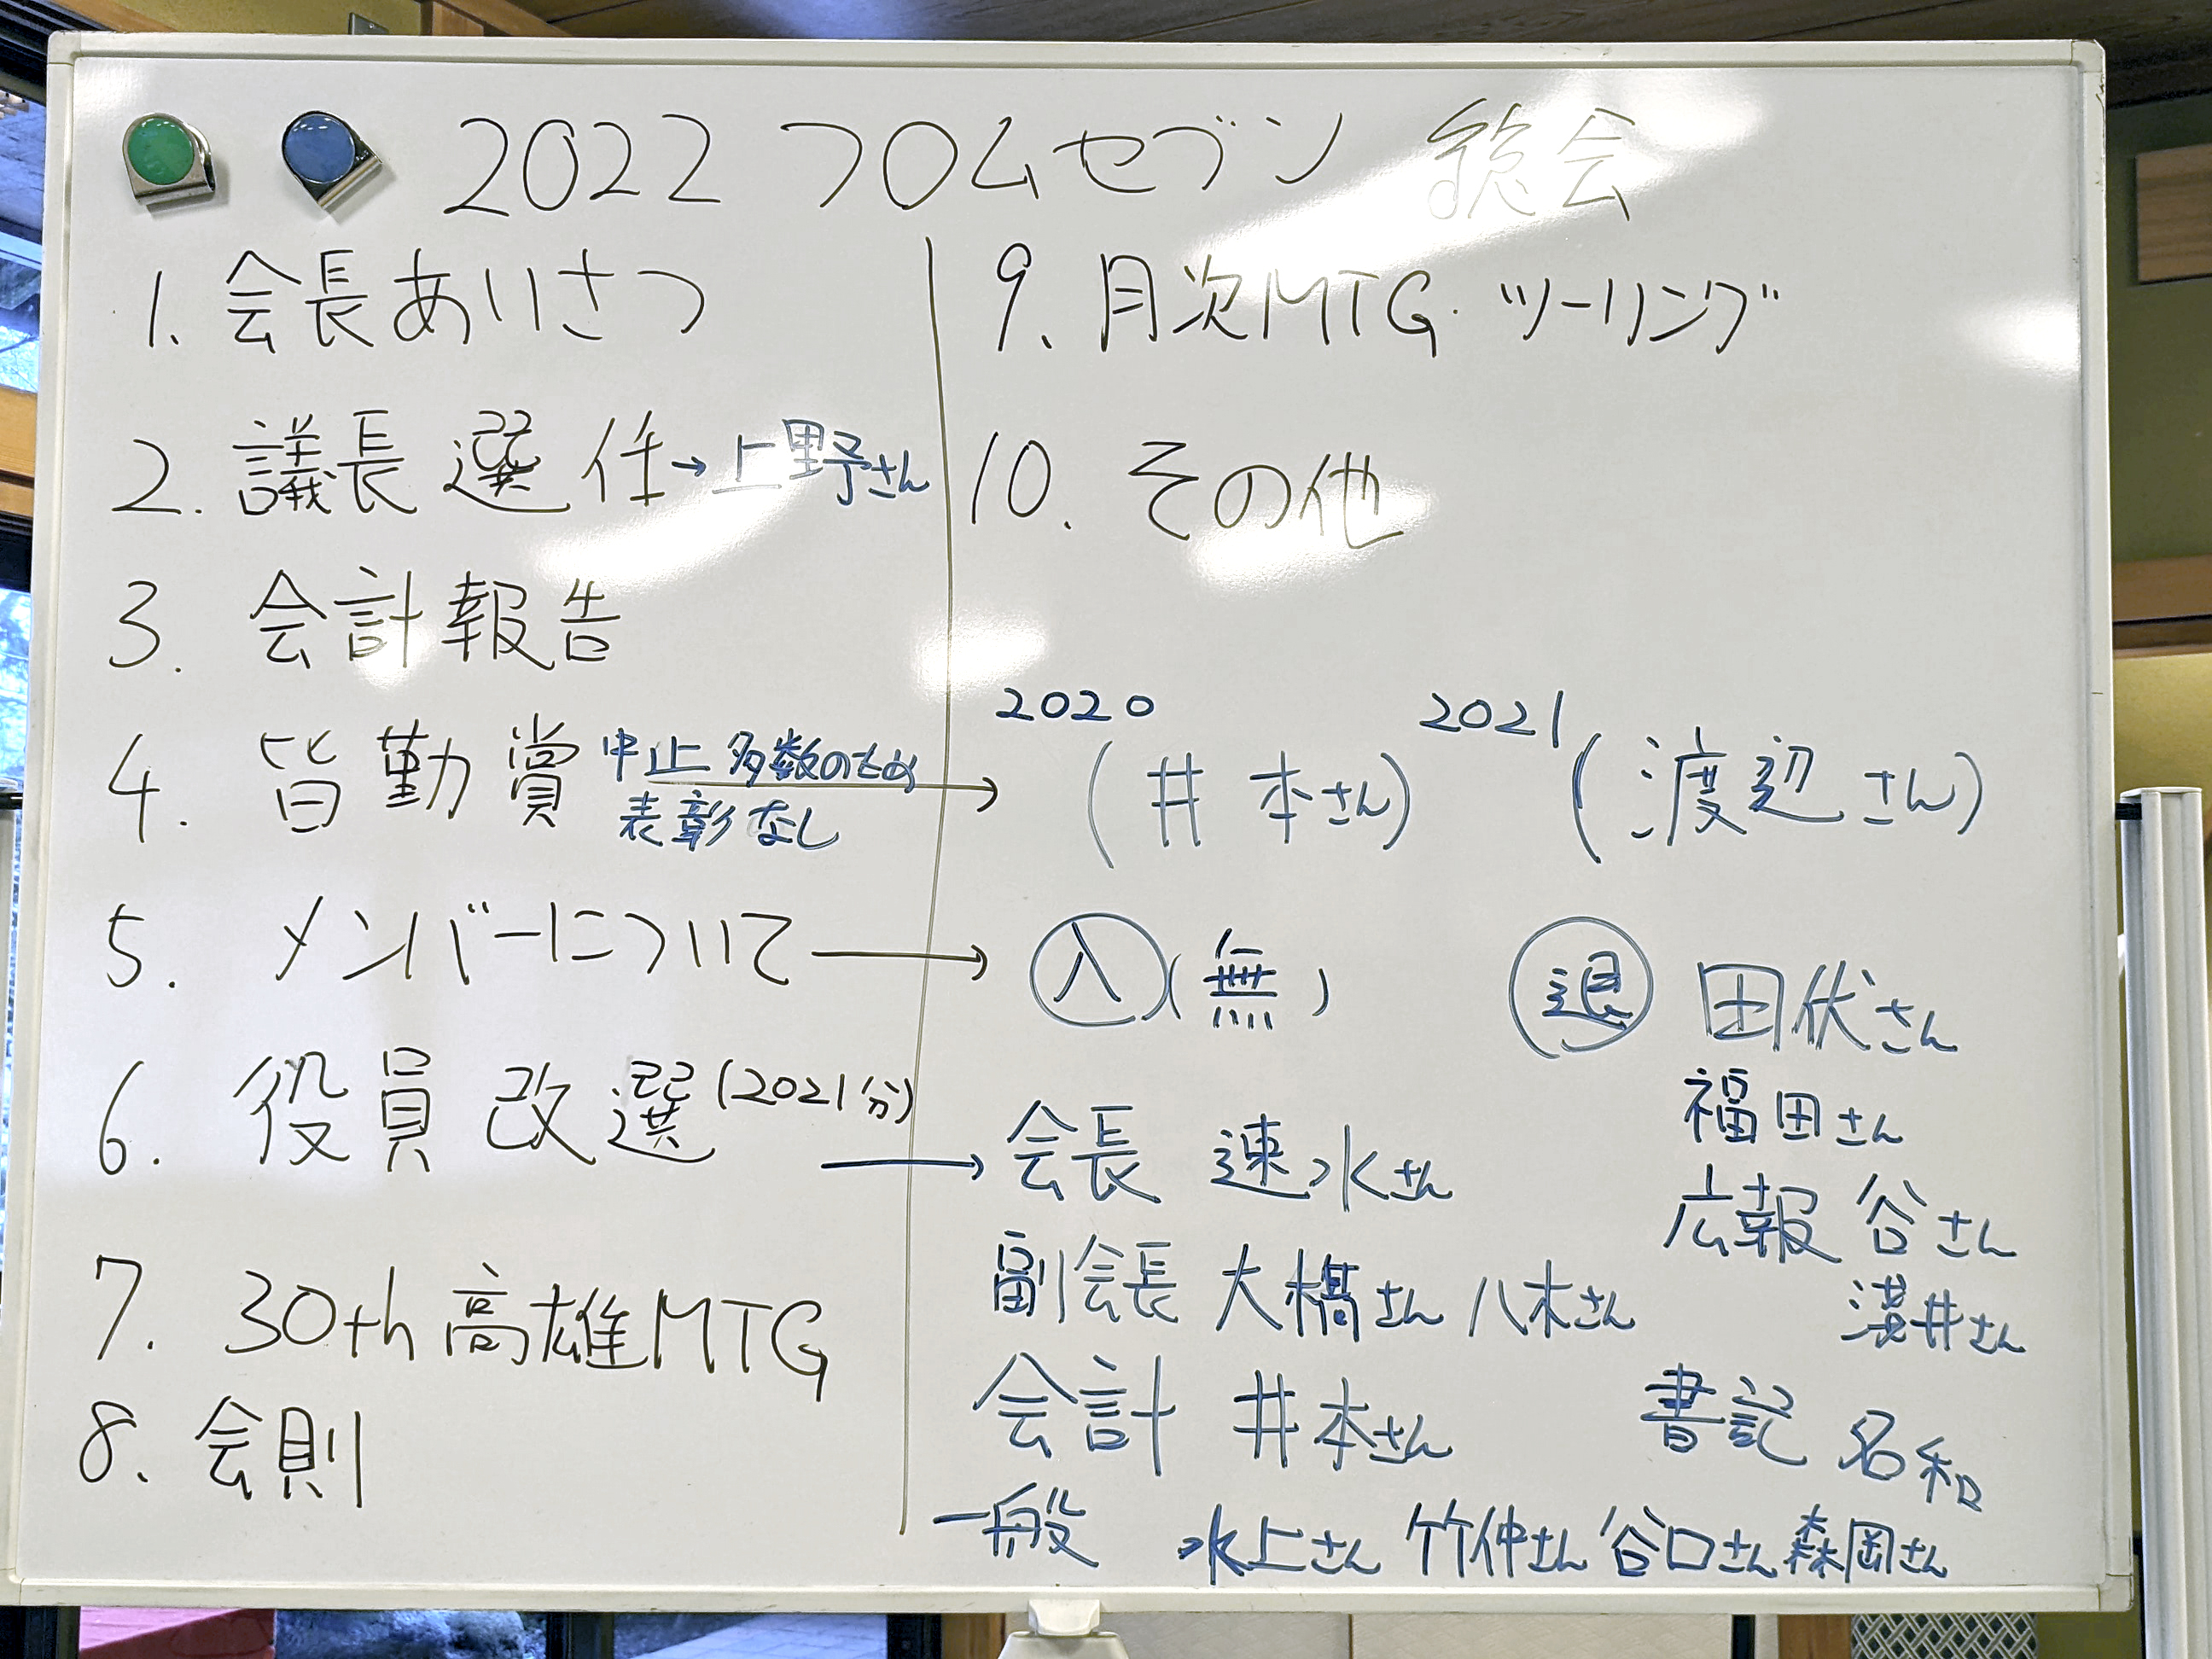 2022 フロムセブン 総会
1. 会長あいさつ
2. 議長選任→上野さん
3. 会計報告
4. 皆勤賞 中止多数のため
表彰なし
→ 2020 (井本さん) 2021 (渡辺さん)
5. メンバーについて → 入(無) 退 田伏さん
福田さん
6. 役員改選(2021分)
→ 会長 速水さん
広報 谷さん
副会長 大橋さん 八木さん
濱井さん
会計 井本さん 書記 名和
一般 水上さん 竹仲さん 谷口さん 森岡さん
7. 30th高雄MTG
8. 会則
9. 月次MTG・ツーリング
10. その他